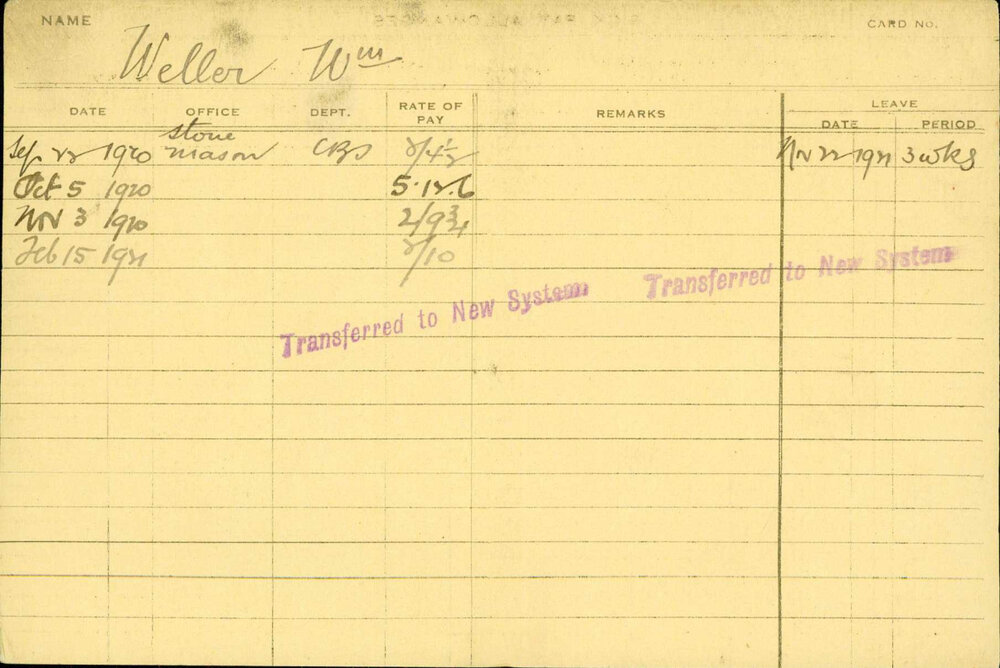 NAME CARD No.
Weller Wm
DATE OFFICE DEPT. RATE OF PAY REMARKS LEAVE
DATE PERIOD
Sep 22 1920 stone mason CBS 2/4½ Nov 22 1921 3 wks
Oct 5 1920 5.12.6
Nov 3 1920 2/9¾
Feb 15 1921 2/10
Transferred to New System
Transferred to New System